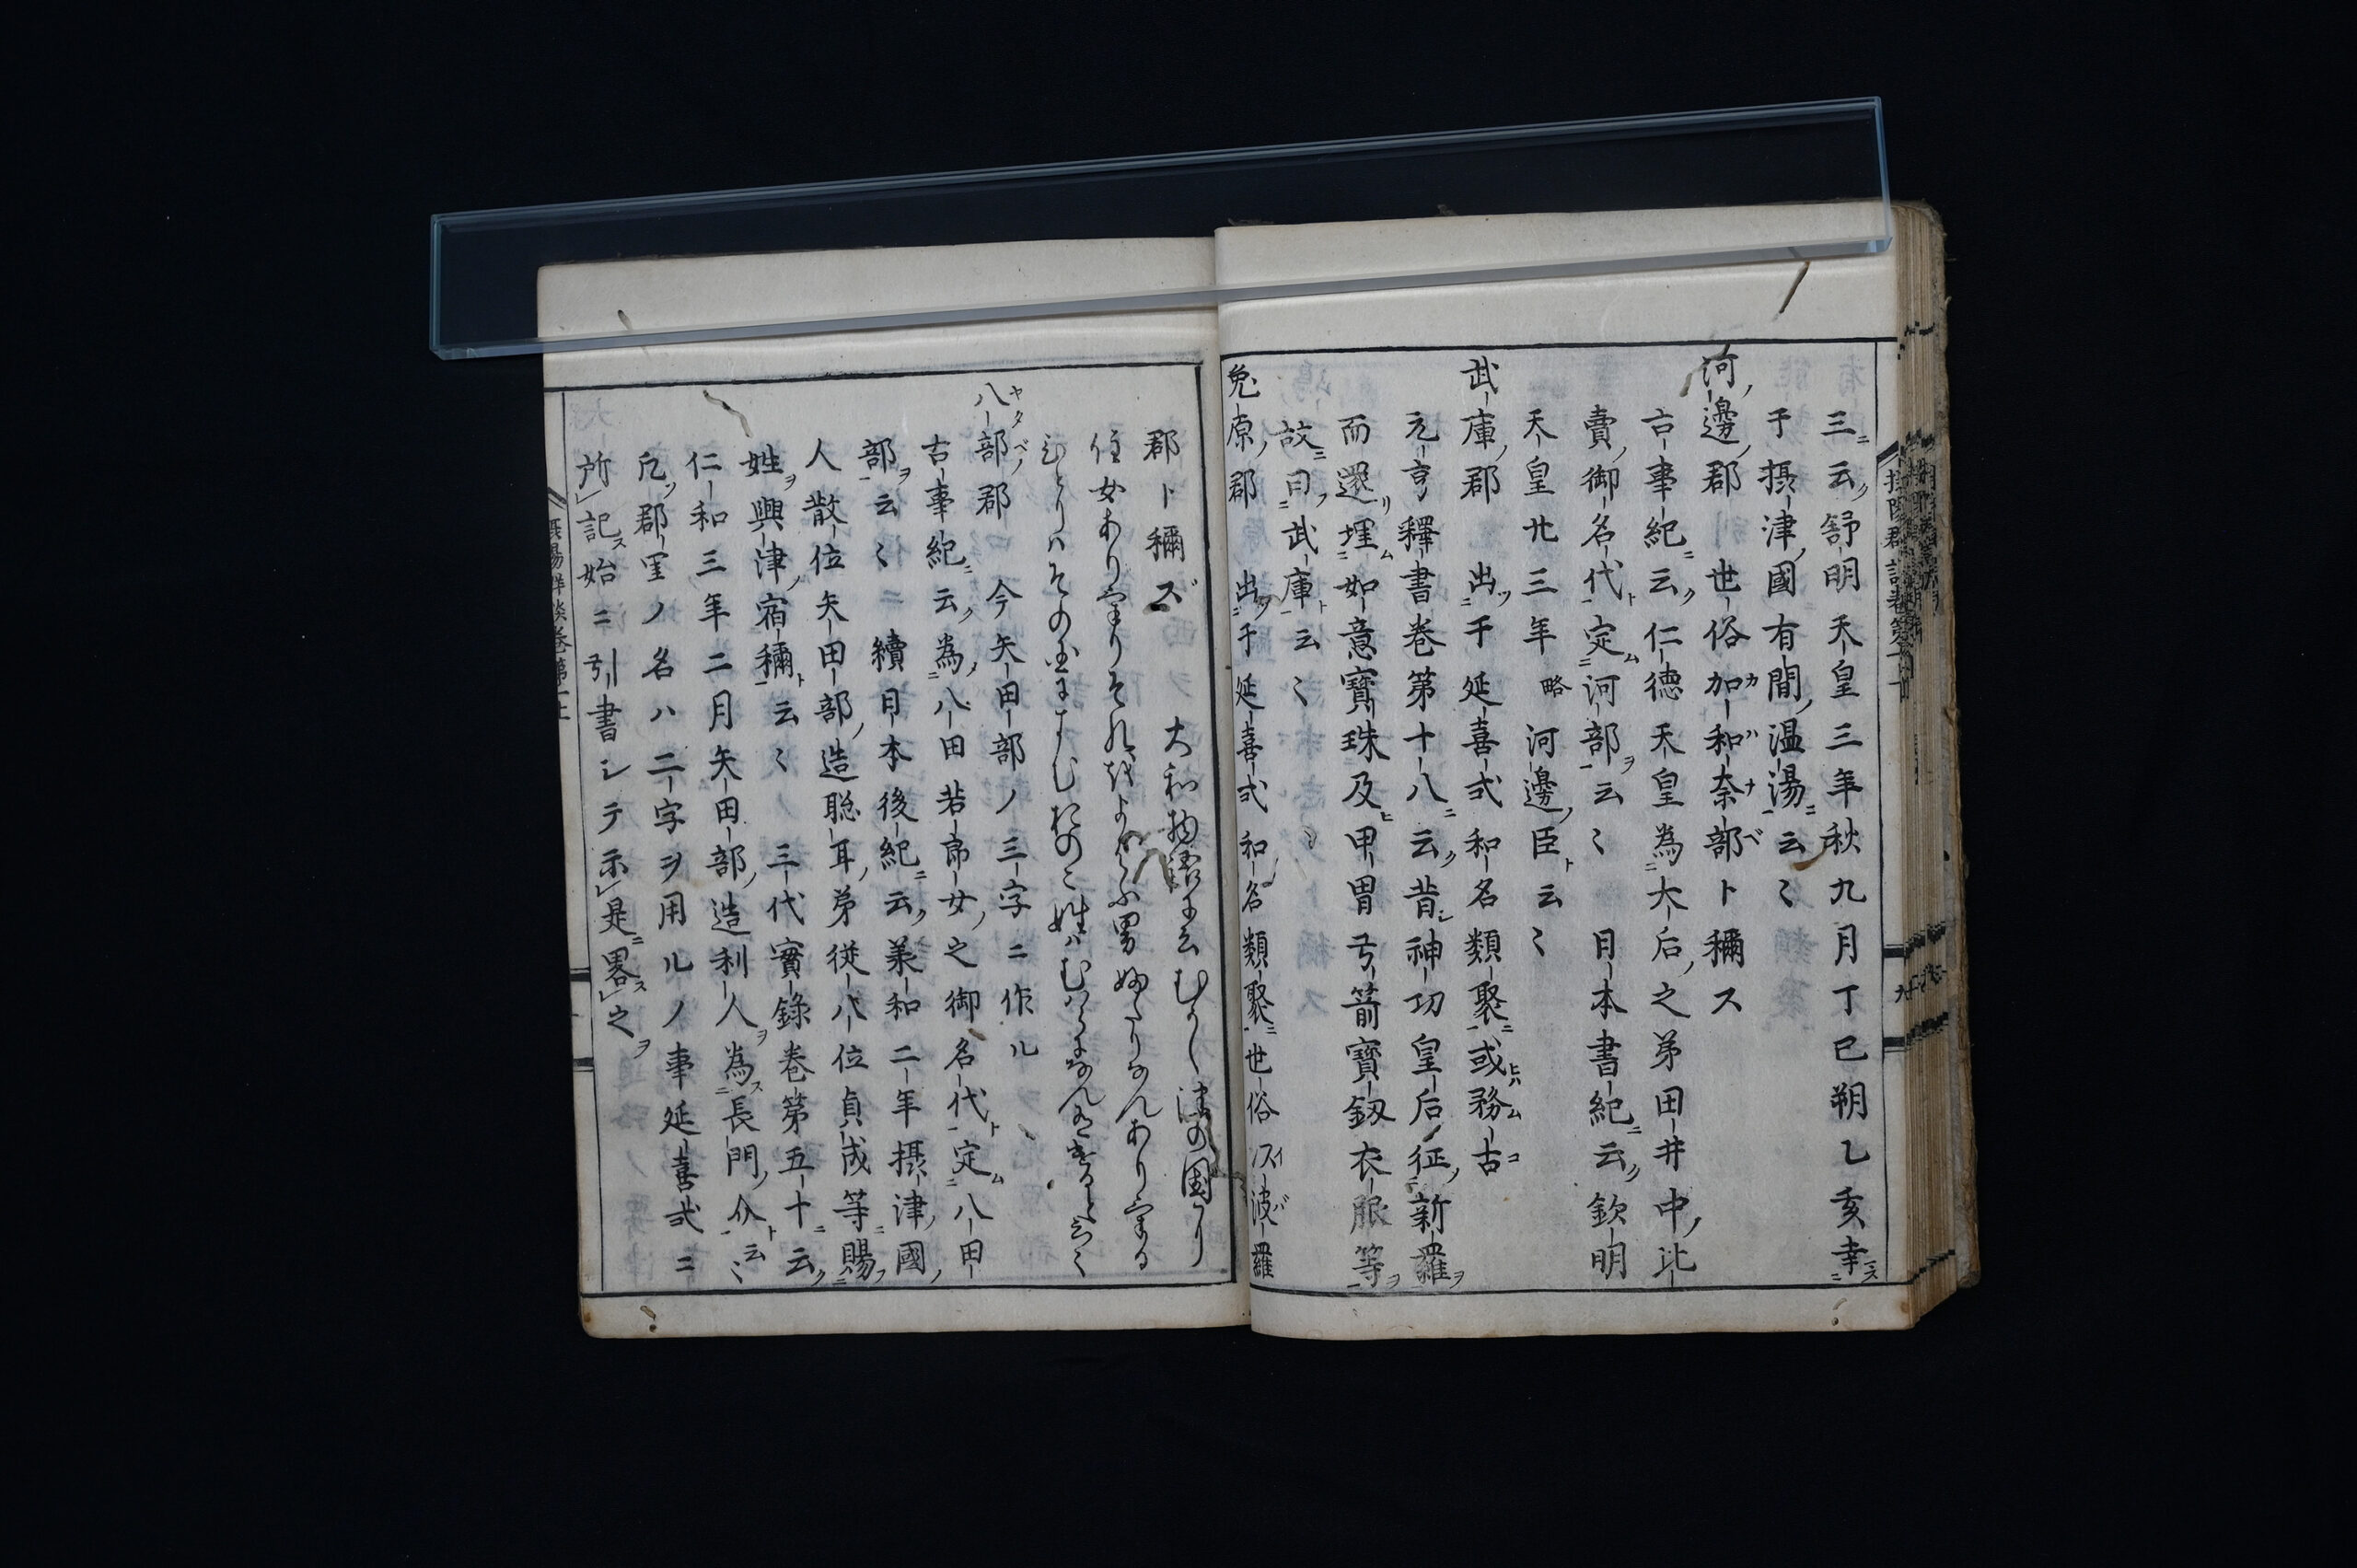 三云舒明天皇三年秋九月丁巳朔乙亥幸
于摂津國有間温湯云〻
河邊郡 世俗加和奈部ト穪ス
古事紀云仁徳天皇為大后之弟田井中比
賣御名代定河部云〻 日本書紀云欽明
天皇廿三年略河邊臣云〻
武庫郡 出于延喜式和名類聚或務古
元亨釋書巻第十八云昔神功皇后征新羅
而還埋如意寶珠及甲冑弓箭寶釼衣服等
故曰武庫云〻
兎原郡 出于延喜式和名類聚世俗ハス波羅
郡ト穪ズ 大和物語に云むかし津の国に
住女ありけりそれをよばふ男ふたりなんありける
ひとりはその国にすむおのこ姓はむばらになん有ける
八部郡 今矢田部ノ三字ニ作ル
古事紀云為八田若郎女之御名代定八田
部云〻ニ續日本後紀云美和二年摂津國
人散位矢田部造聡耳弟従八位貞成等賜
姓興津宿穪云〻 三代實録巻第五十云
仁和三年二月矢田部造利人為長門介云〻
凡郡里ノ名ハ二字ヲ用ルノ事延喜式ニ
所記始ニ引書シテ示是畧之